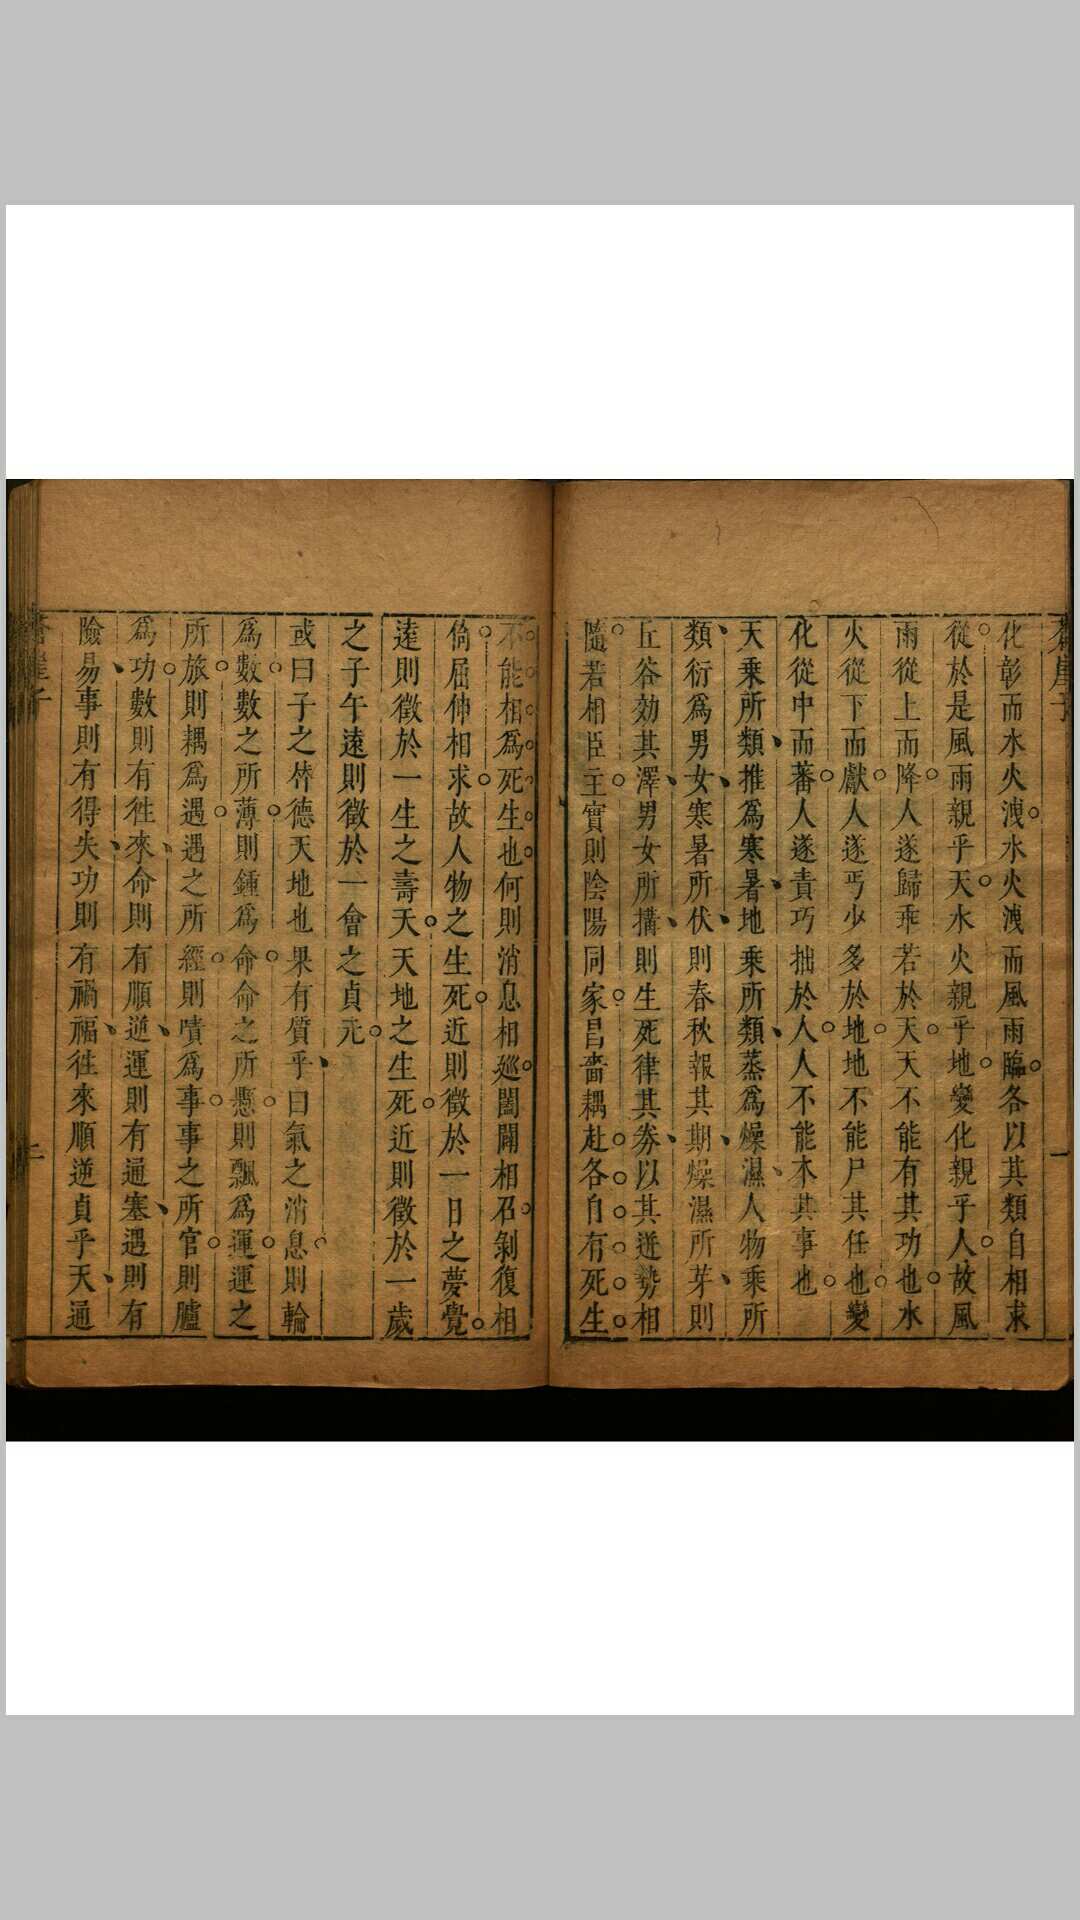 化彰而水火洩水火洩而風雨臨各以其類自相求
從於是風雨親乎天水火親乎地變化親乎人故風
雨從上而降人遂歸乖若於天天不能有其功也水
火從下而獻人遂丐少多於地地不能尸其任也變
化從中而蕃人遂責巧拙於人人不能木其事也
天乘所類推爲寒暑地乘所類蒸爲燥濕人物乘所
類衍爲男女寒暑所伏則春秋報其期燥濕所芽則
丘谷効其澤男女所搆則生死律其劵以其迸勢相
隨若相臣主實則陰陽同家昌嗇耦赴各自有死生
不能相爲死生也何則消息相巡闔闢相召剝復相
倚屈伸相求故人物之生死近則徵於一日之夢覺
逺則徵於一生之壽夭天地之生死近則徵於一歲
之子午遠則徵於一會之貞元
或曰子之嘦德天地也果有質乎曰氣之消息則輪
爲數數之所薄則鍾爲命命之所懸則飄爲運運之
所旅則耦爲遇遇之所經則嘖爲事事之所官則臚
爲功數則有徃來命則有順逆運則有通塞遇則有
險易事則有得失功則有禍福徃來順逆貞乎天通